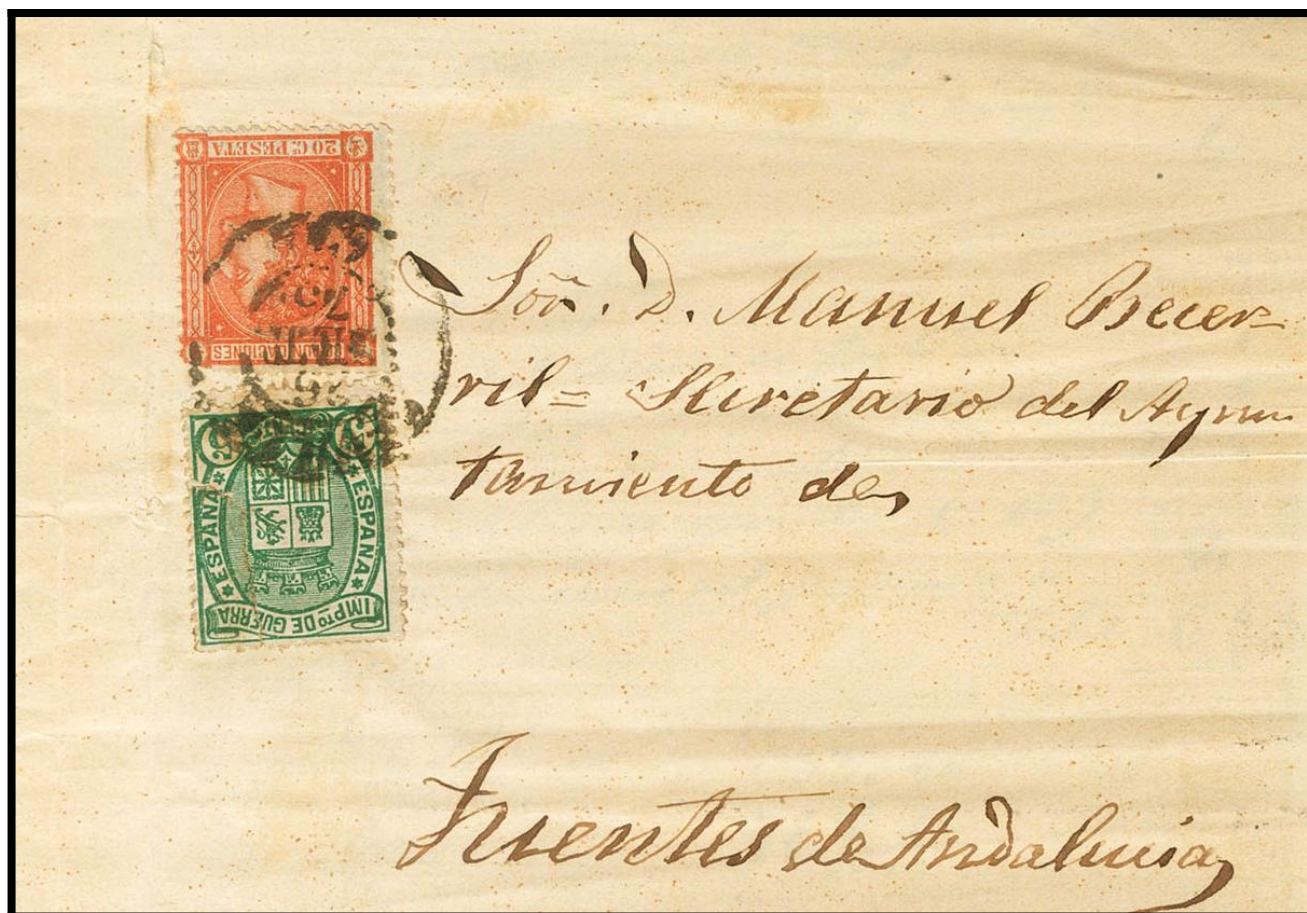 20 Cs PESETA
COMUNICACIONES
75
5 Cs
5 Cs
ESPAÑA
ESPAÑA
IMPto DE GUERRA
Sor. D. Manuel Becer=
ril= Secretario del Ayun
tamiento de
Fuentes de Andalucia